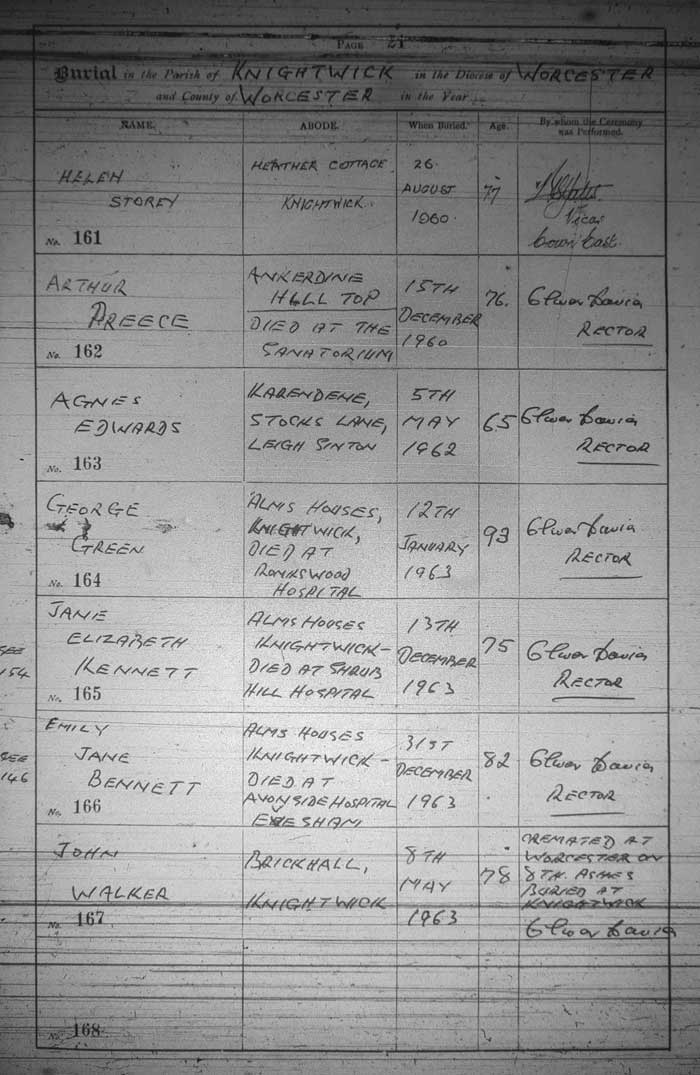 PAGE 21
Burial in the Parish of KNIGHTWICK in the Diocese of WORCESTER
and County of WORCESTER in the Year
NAME. ABODE. When Buried. Age. By whom the Ceremony was Performed.
HELEN
STOREY
No. 161
HEATHER COTTAGE
KNIGHTWICK.
26
AUGUST
1960.
77
Vicar
ARTHUR
PREECE
No. 162
ANKERDINE
HILL TOP
DIED AT THE
SANATORIUM
15TH
DECEMBER
1960
76.
RECTOR
AGNES
EDWARDS
No. 163
KARENDENE,
STOCKS LANE,
LEIGH SINTON
5TH
MAY
1962
65
RECTOR
GEORGE
GREEN
No. 164
ALMS HOUSES,
KNIGHTWICK,
DIED AT
RONKSWOOD
HOSPITAL
12TH
JANUARY
1963
93
RECTOR
SEE
154
JANE
ELIZABETH
KENNETT
No. 165
ALMS HOUSES
KNIGHTWICK-
DIED AT SHRUB
HILL HOSPITAL
13TH
DECEMBER
1963
75
RECTOR
SEE
146
EMILY
JANE
BENNETT
No. 166
ALMS HOUSES
KNIGHTWICK-
DIED AT
AVONSIDE HOSPITAL
EVESHAM
31ST
DECEMBER
1963
82
RECTOR
JOHN
WALKER
No. 167
BRICKHALL,
KNIGHTWICK
8TH
MAY
1963
78
CREMATED AT
WORCESTER ON
8TH. ASHES
BURIED AT
KNIGHTWICK
No. 168